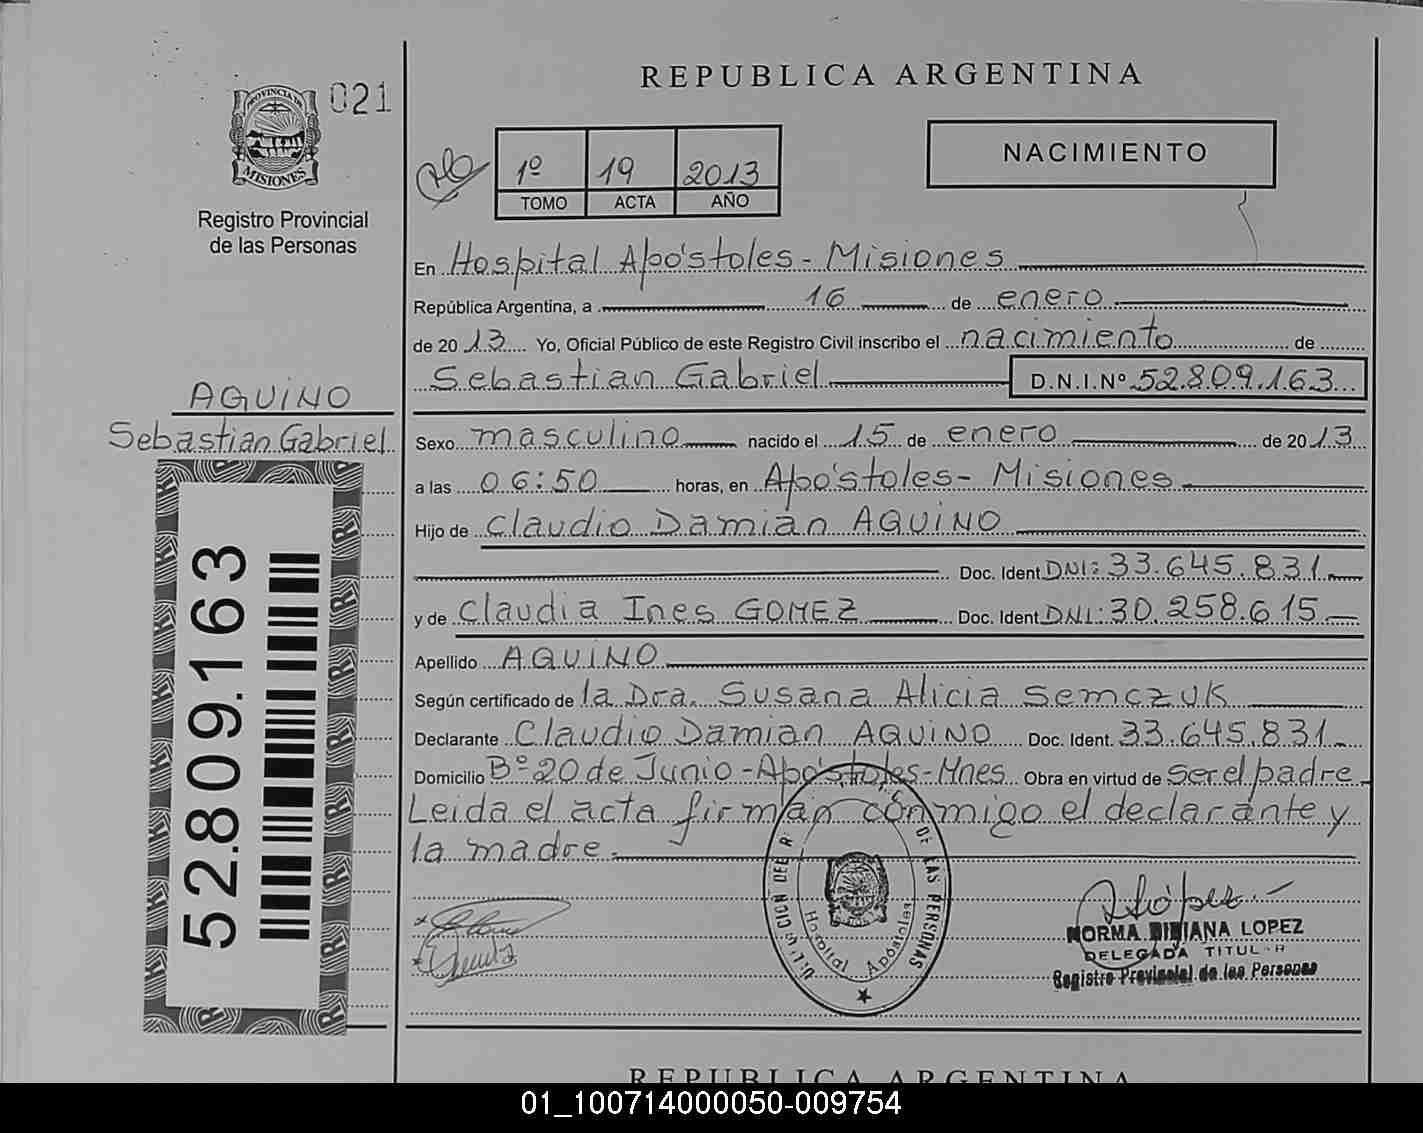 REPUBLICA ARGENTINA
021
PROVINCIA DE
MISIONES
Registro Provincial
de las Personas
1º 19 2013
TOMO ACTA AÑO
NACIMIENTO
En Hospital Apóstoles - Misiones
República Argentina, a 16 de enero
de 2013 Yo, Oficial Público de este Registro Civil inscribo el nacimiento de
Sebastian Gabriel D.N.I.Nº 52.809.163
AQUiNO
Sebastian Gabriel
Sexo masculino nacido el 15 de enero de 2013
a las 06:50 horas, en Apóstoles - Misiones
Hijo de Claudio Damián AQUiNO
Doc. Ident DNI: 33.645.831
y de Claudia Ines GOMEZ Doc. Ident DNI: 30.258.615
Apellido AQUiNO
Según certificado de la Dra. Susana Alicia Semczuk
Declarante Claudio Damian AQUiNO Doc. Ident. 33.645.831
Domicilio Bº 20 de Junio - Apóstoles - Mnes Obra en virtud de ser el padre
Leida el acta firman conmigo el declarante y
la madre.
52.809.163
DE LAS PERSONAS
Hospital Apóstoles
NORMA BIBIANA LOPEZ
DELEGADA TITULAR
Registro Provincial de las Personas
REPUBLICA ARGENTINA
01_100714000050-009754